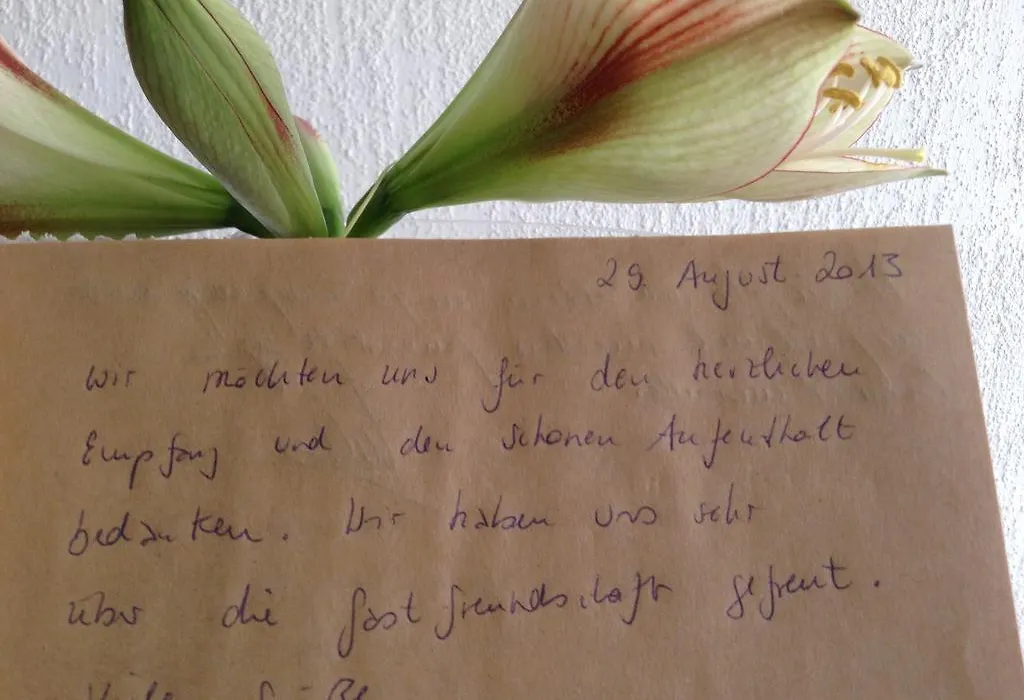 29. August 2013
Wir möchten uns für den herzlichen
Empfang und den schönen Aufenthalt
bedanken. Wir haben uns sehr
über die Gastfreundschaft gefreut.
Viele Grüße